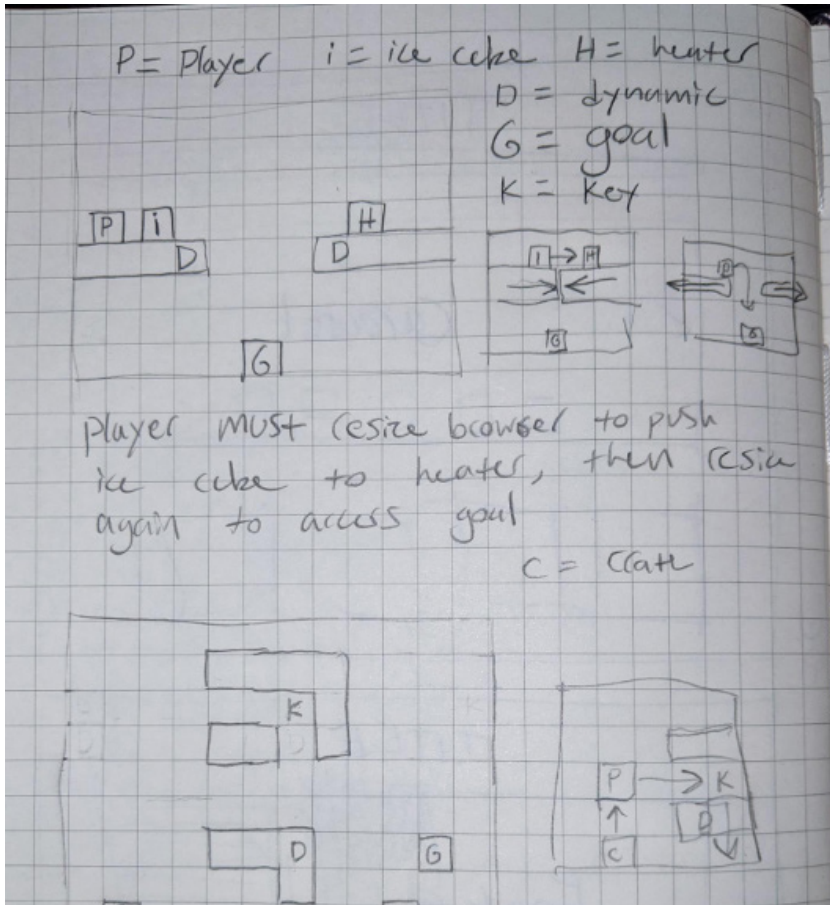 P = Player i = ice cube H = heater
D = dynamic
G = goal
K = Key
P i
D
H
D
G
I H
G
P
G
player must resize browser to push
ice cube to heater, then resize
again to access goal
C = Crate
K
D
G
P K
D
C